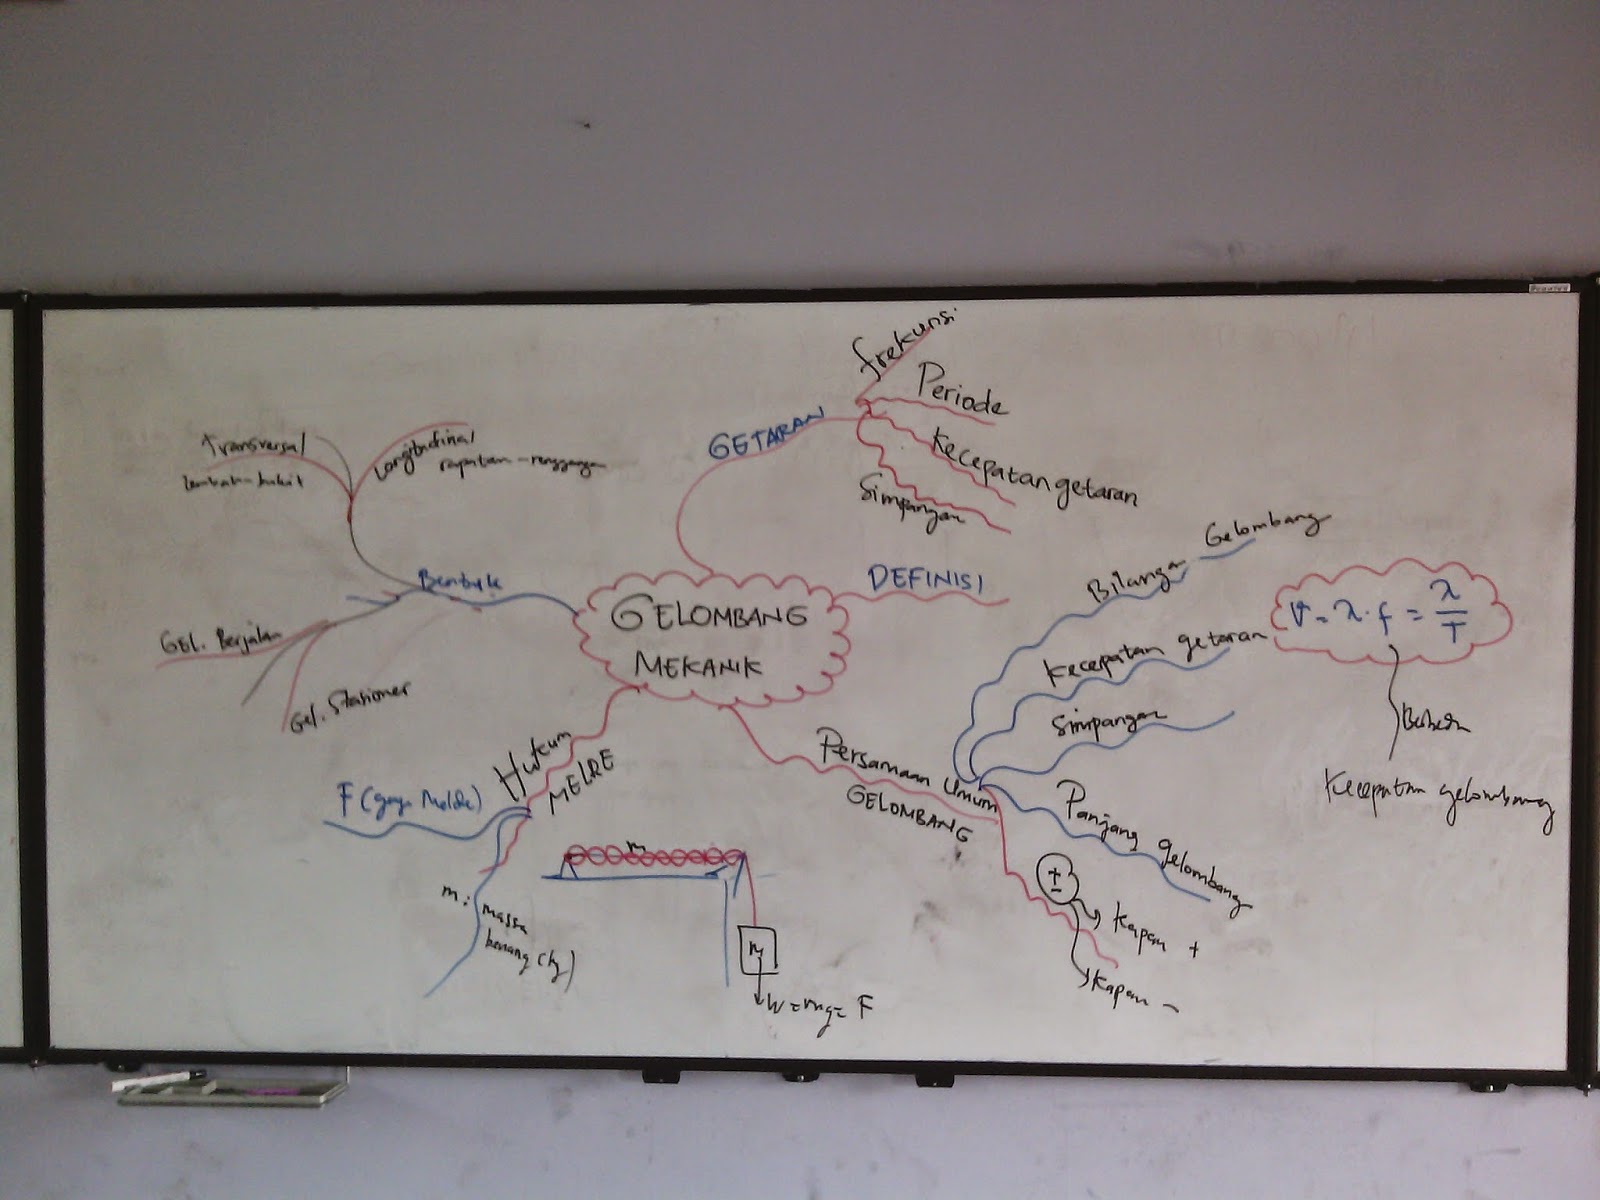 GELOMBANG
MEKANIK
GETARAN
frekuensi
Periode
Kecepatan getaran
Simpangan
DEFINISI
Persamaan Umum
GELOMBANG
Bilangan Gelombang
Kecepatan getaran
V = λ.f = λ/T
Kecepatan gelombang
Simpangan
Panjang gelombang
±
Kapan +
Kapan -
Hukum
MELDE
F (gaya Melde)
m : massa
benang (kg)
m
M
W = mg = F
Bentuk
Transversal
Lembah-bukit
Longitudinal
rapatan-renggangan
Gel. Berjalan
Gel. Stationer